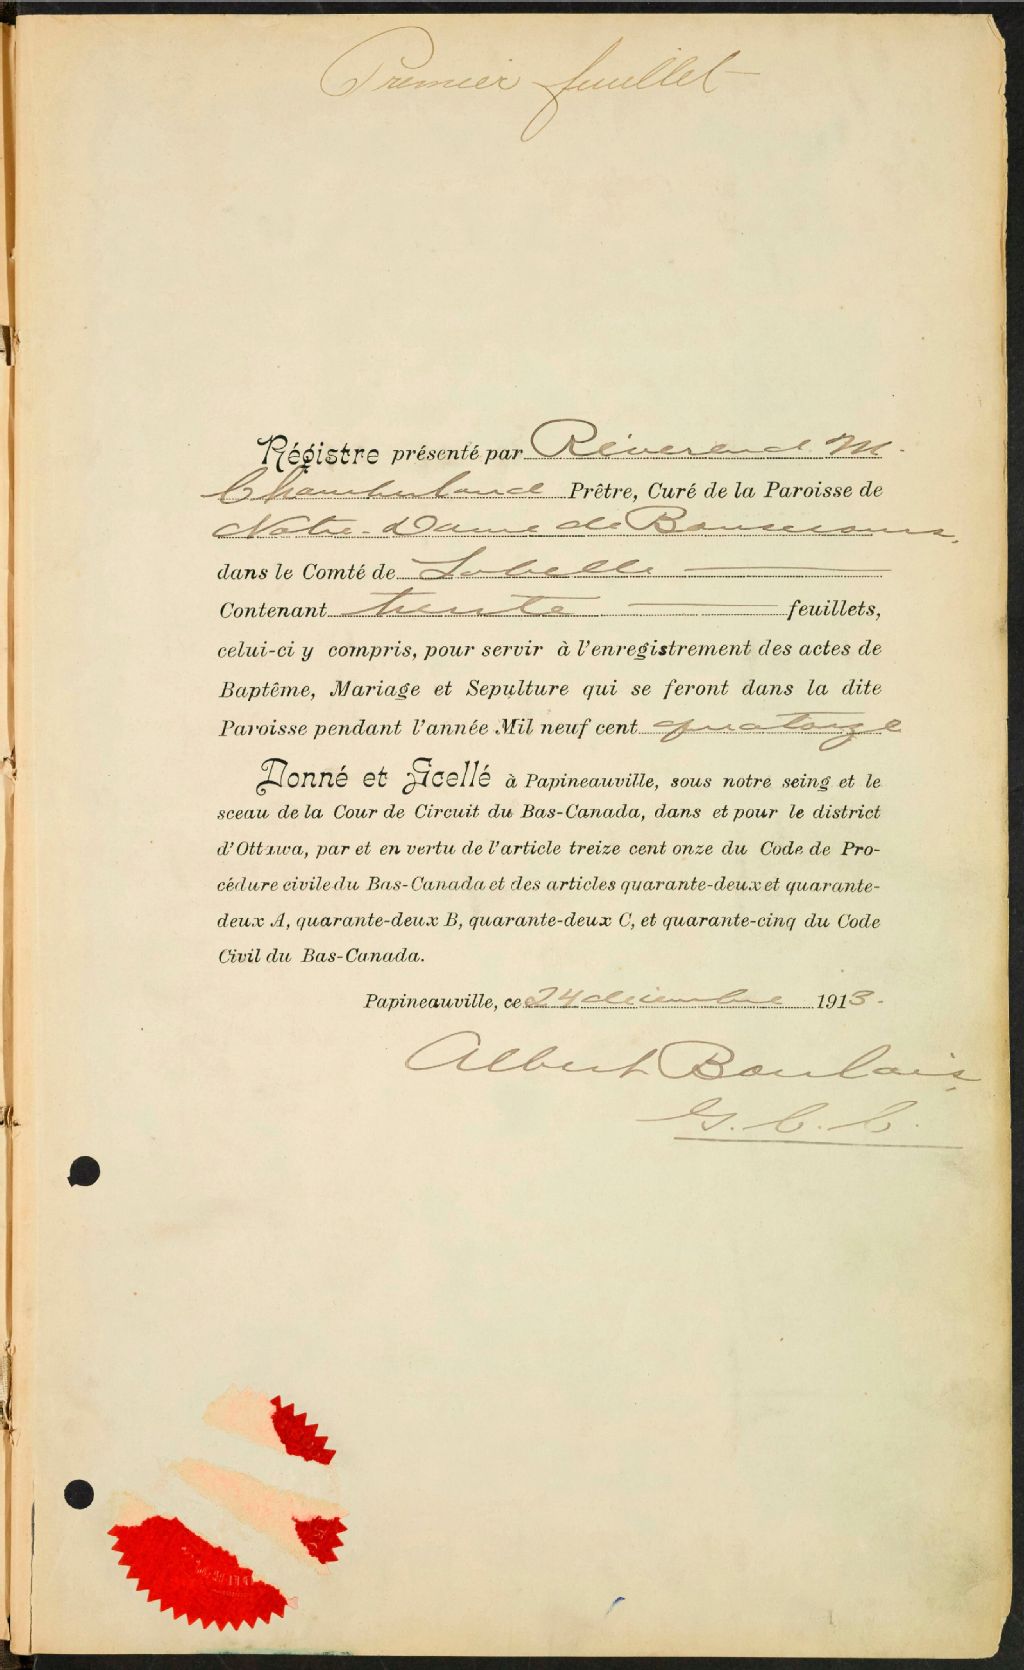 Premier feuillet
Régistre présenté par Révérend M.
Chamberland Prêtre, Curé de la Paroisse de
Notre-Dame de Bonsecours,
dans le Comté de Labelle
Contenant trente feuillets,
celui-ci y compris, pour servir à l'enregistrement des actes de
Baptême, Mariage et Sepulture qui se feront dans la dite
Paroisse pendant l'année Mil neuf cent quatorze
Donné et Scellé à Papineauville, sous notre seing et le
sceau de la Cour de Circuit du Bas-Canada, dans et pour le district
d'Ottawa, par et en vertu de l'article treize cent onze du Code de Pro-
cédure civile du Bas-Canada et des articles quarante-deux et quarante-
deux A, quarante-deux B, quarante-deux C, et quarante-cinq du Code
Civil du Bas-Canada.
Papineauville, ce 24 décembre 1913.
Albert Boulais,
G. C. C.